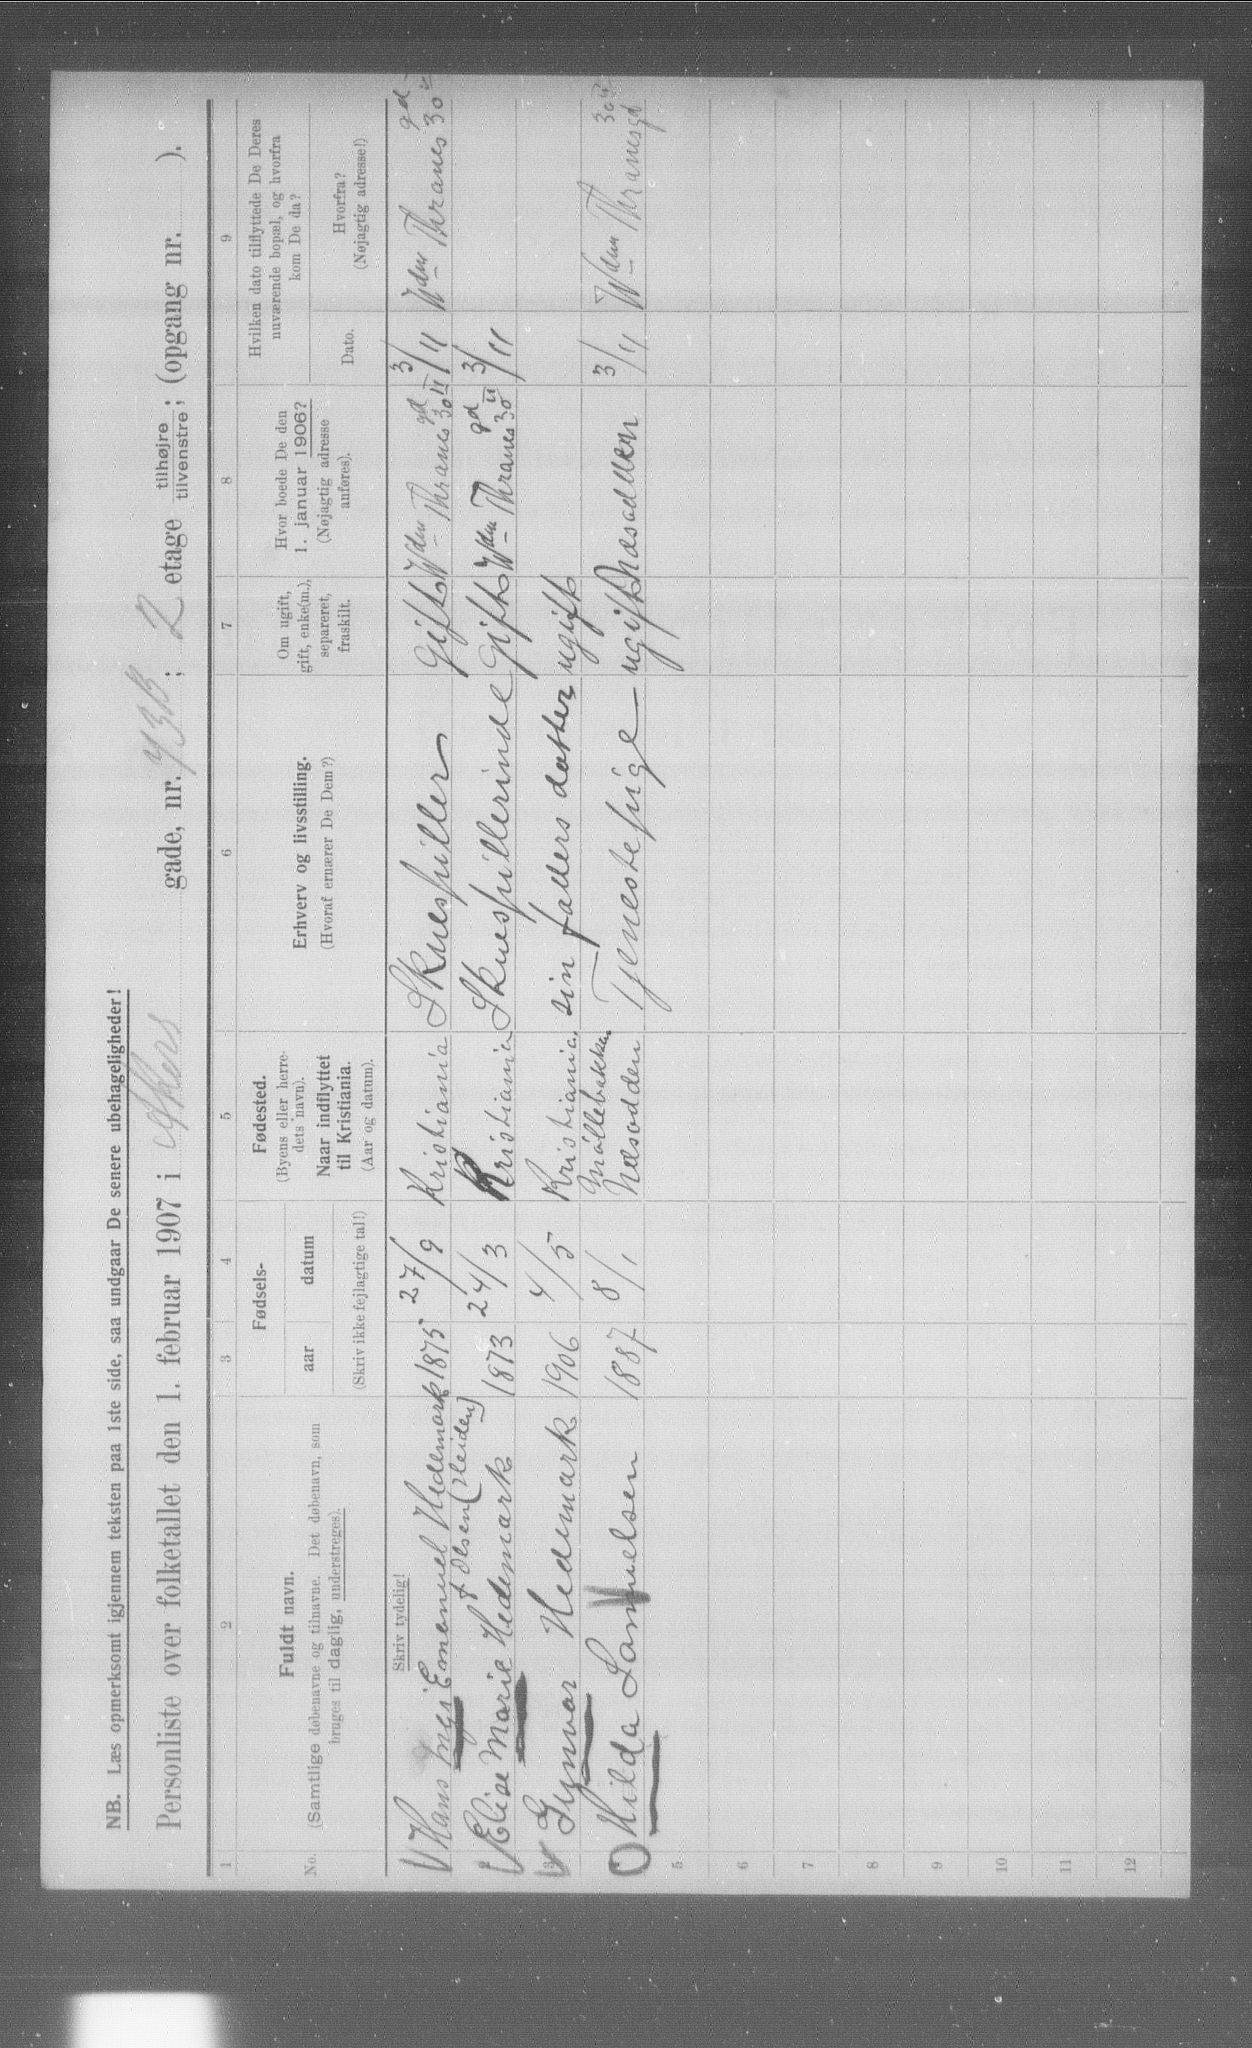 NB. Læs opmerksomt igjennem teksten paa 1ste side, saa undgaar De senere ubehageligheder!
Personliste over folketallet den 1. februar 1907 i Akers gade, nr. 73B; 2 etage tilhøjre tilvenstre; (opgang nr. ).
1 2 3 4 5 6 7 8 9
No.
Fuldt navn.
(Samtlige døbenavne og tilnavne. Det døbenavn, som
bruges til daglig, understreges).
Fødsels-
aar datum
(Skriv ikke fejlagtige tal!)
Fødested.
(Byens eller herre-
dets navn).
Naar indflyttet
til Kristiania.
(Aar og datum).
Erhverv og livsstilling.
(Hvoraf ernærer De Dem?)
Om ugift,
gift, enke(m.),
separeret,
fraskilt.
Hvor boede De den
1. januar 1906?
(Nøjagtig adresse
anføres).
Hvilken dato tilflyttede De Deres
nuværende bopæl, og hvorfra
kom De da?
Dato.
Hvorfra?
(Nøjagtig adresse!)
Skriv tydelig!
Hans Emanuel Hedemark 1875 27/9 Kristiania Skuespiller gift Thranes gd 30 II 3/11 Thranes gd 30
f Olsen (Heiden)
Elise Marie Hedemark 1873 24/3 Kristiania Skuespillerinde gift Thranes gd 30 II 3/11
3 Gynvor Hedemark 1906 4/5 Kristiania. sin faders datter ugift
Hilda Samuelsen 1887 8/1 Møllebakken Næsodden Tjenestepige ugift Næsodden 3/11 Thranes gd 30 II
5
6
7
8
9
10
11
12